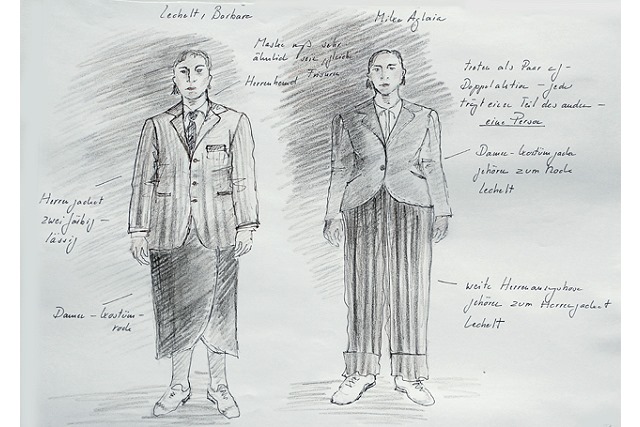 Lechelt, Barbara
Milea Aglaia
Maske muß sehr
ähnlich sein, gleiche
Herrenhemd Frisuren
treten als Paar auf –
Doppelaktion – jede
trägt einen Teil des anderen –
eine Person
Damen-Kostümjacke
gehören zum Rock
Lechelt
Herrenjacket
zweifarbig –
lässig
Damen-Kostüm-
rock
weite Herrenanzughose
gehören zum Herrenjacket
Lechelt